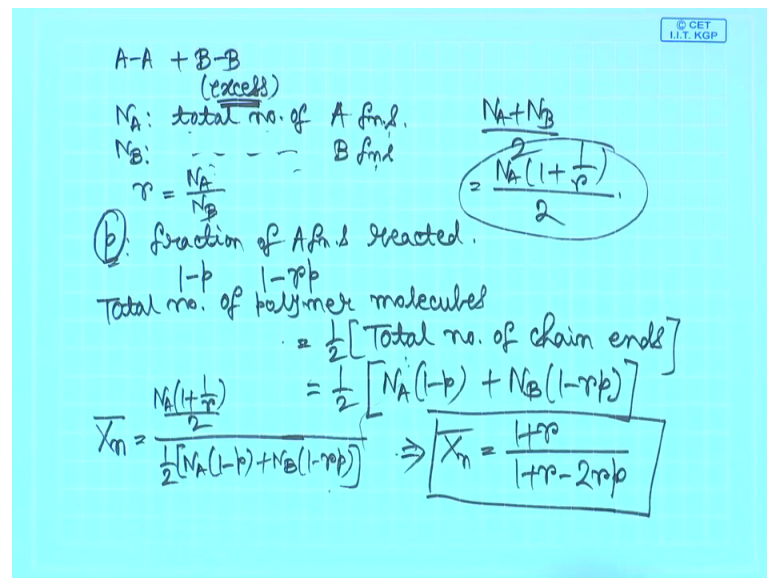 © CET
I.I.T. KGP
A-A + B-B
(excess)
N_A: total no. of A fn.s.
N_B: - - - - B fns
r = N_A / N_B
(N_A + N_B) / 2
= N_A (1 + 1/r) / 2
p: fraction of A fn.s reacted.
1-p 1-rp
Total no. of polymer molecules
= 1/2 [Total no. of chain ends]
= 1/2 [N_A (1-p) + N_B (1-rp)]
X̄n = (N_A (1 + 1/r) / 2) / (1/2 [N_A (1-p) + N_B (1-rp)])
⇒ X̄n = (1+r) / (1+r-2rp)